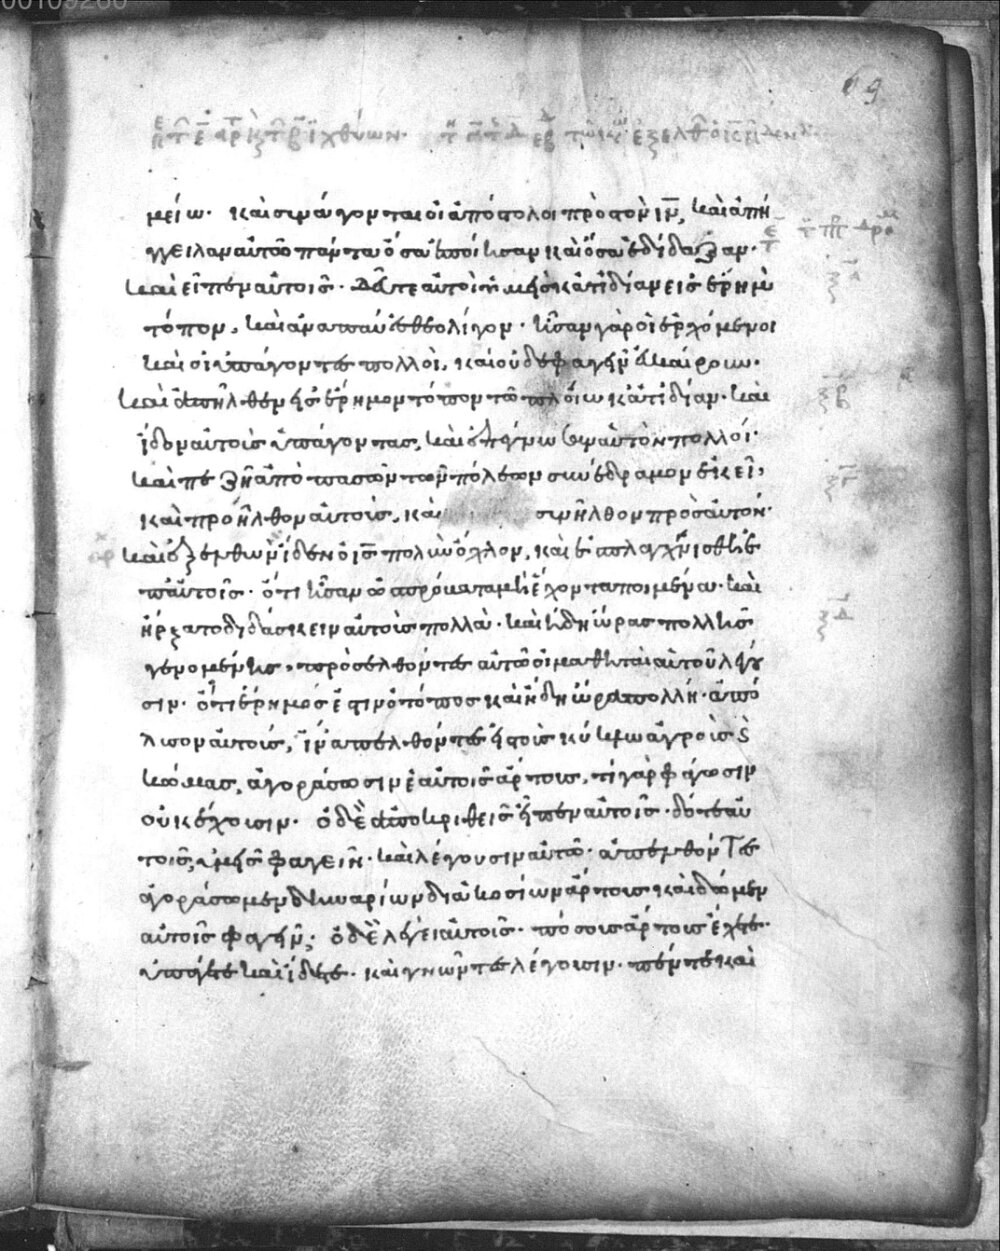 69
μείω· καὶ συνάγονται οἱ ἀπόστολοι πρὸς τὸν ιν, καὶ ἀπή
γγειλαν αὐτῶ πάντα ὅσα ἐποίησαν καὶ ὅσα ἐδίδαξαν·
καὶ εἶπεν αὐτοῖς· δεῦτε αὐτοὶ ὑμεῖς κατιδίαν εἰς ἔρημον
τόπον, καὶ ἀναπαύεσθε ὀλίγον· ἦσαν γὰρ οἱ ἐρχόμενοι
καὶ οἱ ὑπάγοντες πολλοὶ, καὶ οὐδὲ φαγεῖν εὐκαίρουν·
καὶ ἀπῆλθεν εἰς ἔρημον τόπον τῶ πλοίω κατιδίαν· καὶ
ἴδον αὐτοὺς ὑπάγοντας, καὶ ἐπέγνωσαν αὐτὸν πολλοί·
καὶ πεζῆ ἀπὸ πασῶν τῶν πόλεων συνέδραμον ἐκεῖ,
καὶ προῆλθον αὐτοὺς, καὶ συνῆλθον πρὸς αὐτόν·
καὶ ἐξελθὼν ἴδεν ὁ ις πολὺν ὄχλον, καὶ ἐσπλαγχνίσθη ἐ
π' αὐτοῖς· ὅτι ἦσαν ὡς πρόβατα μὴ ἔχοντα ποιμένα· καὶ
ἤρξατο διδάσκειν αὐτοὺς πολλά· καὶ ἤδη ὥρας πολλῆς
γενομένης, προσελθόντες αὐτῶ οἱ μαθηταὶ αὐτοῦ λέγου
σιν· ὅτι ἔρημός ἐστιν ὁ τόπος καὶ ἤδη ὥρα πολλή· ἀπό
λυσον αὐτούς, ἵνα ἀπελθόντες εἰς τοὺς κύκλω ἀγροὺς καὶ
κώμας, ἀγοράσωσιν ἑαυτοῖς ἄρτους, τί γὰρ φάγωσιν
οὐκ ἔχουσιν· ὁ δὲ ἀποκριθεὶς εἶπεν αὐτοῖς· δότε αὐ
τοῖς ὑμεῖς φαγεῖν· καὶ λέγουσιν αὐτῶ· ἀπελθόντες
ἀγοράσωμεν δηναρίων διακοσίων ἄρτους καὶ δῶμεν
αὐτοῖς φαγεῖν; ὁ δὲ λέγει αὐτοῖς· πόσους ἄρτους ἔχετε·
ὑπάγετε καὶ ἴδετε· καὶ γνῶντες λέγουσιν· πέντε καὶ